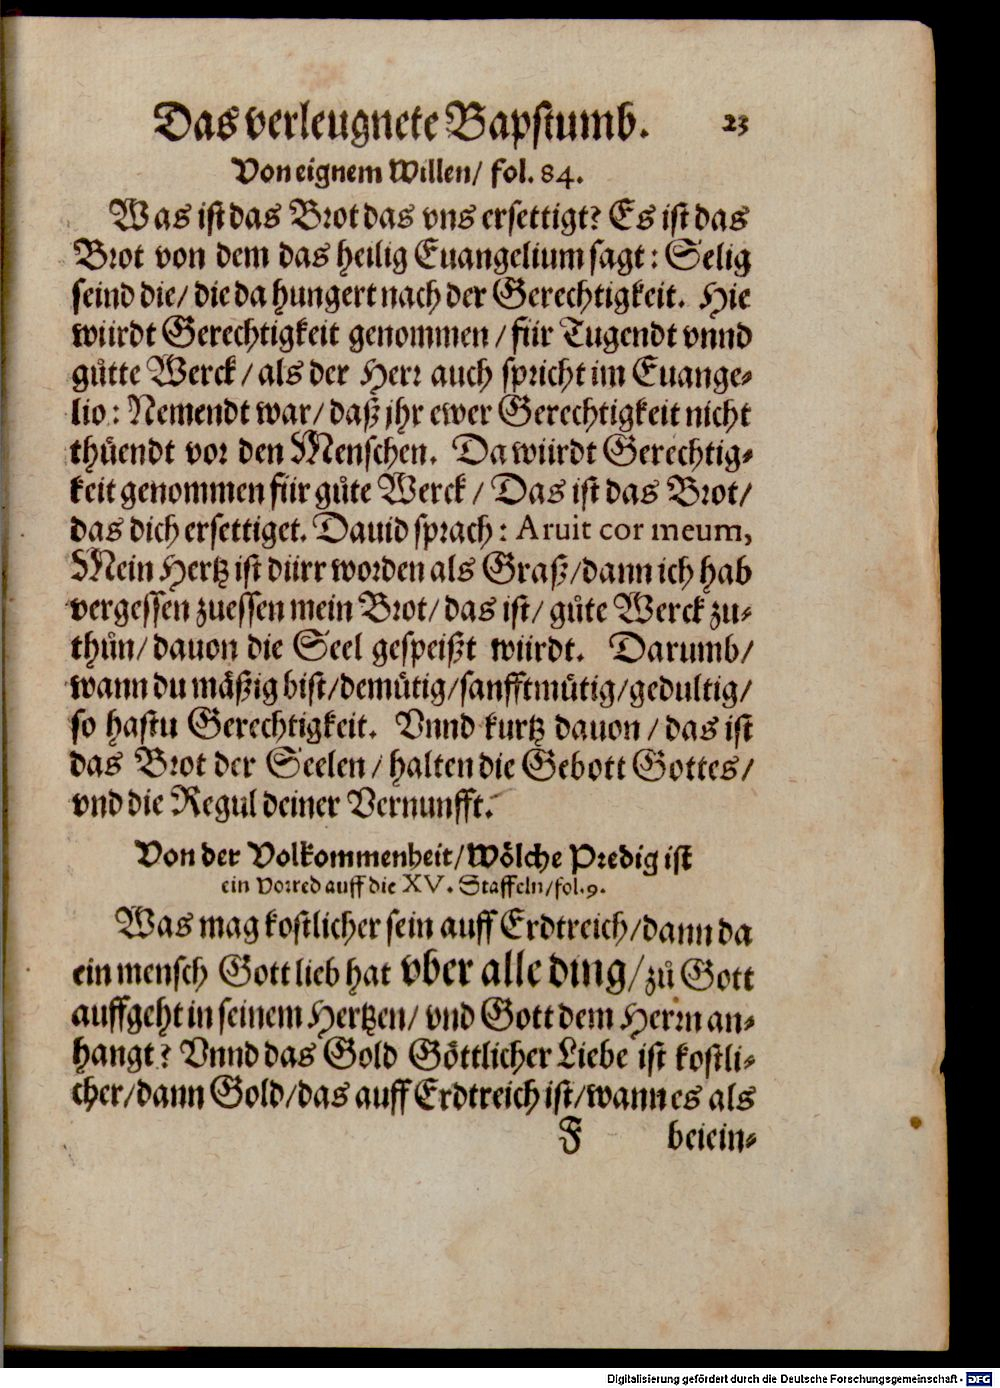 Das verleugnete Bapstumb. 23
Von eignem Willen/ fol. 84.
Was ist das Brot das vns ersettigt? Es ist das
Brot von dem das heilig Euangelium sagt: Selig
seind die/ die da hungert nach der Gerechtigkeit. Hie
würdt Gerechtigkeit genommen / für Tugendt vnnd
gůtte Werck / als der Herr auch spricht im Euange-
lio: Nemendt war/ daß jhr ewer Gerechtigkeit nicht
thůendt vor den Menschen. Da würdt Gerechtig-
keit genommen für gůte Werck / Das ist das Brot/
das dich ersettiget. Dauid sprach: Aruit cor meum,
Mein Hertz ist dürr worden als Graß/ dann ich hab
vergessen zuessen mein Brot/ das ist/ gůte Werck zu-
thůn/ dauon die Seel gespeißt würdt. Darumb/
wann du mäßig bist/ demůtig/ sanfftmůtig/ gedultig/
so hastu Gerechtigkeit. Vnnd kurtz dauon / das ist
das Brot der Seelen/ halten die Gebott Gottes/
vnd die Regul deiner Vernunfft.
Von der Volkommenheit/ Wölche Predig ist
ein Vorred auff die XV. Staffeln/ fol. 9.
Was mag kostlicher sein auff Erdtreich/ dann da
ein mensch Gott lieb hat vber alle ding/ zů Gott
auffgeht in seinem Hertzen/ vnd Gott dem Herrn an-
hangt? Vnnd das Gold Göttlicher Liebe ist kostli-
cher/ dann Gold/ das auff Erdtreich ist/ wann es als
F beiein-
Digitalisierung gefördert durch die Deutsche Forschungsgemeinschaft - DFG